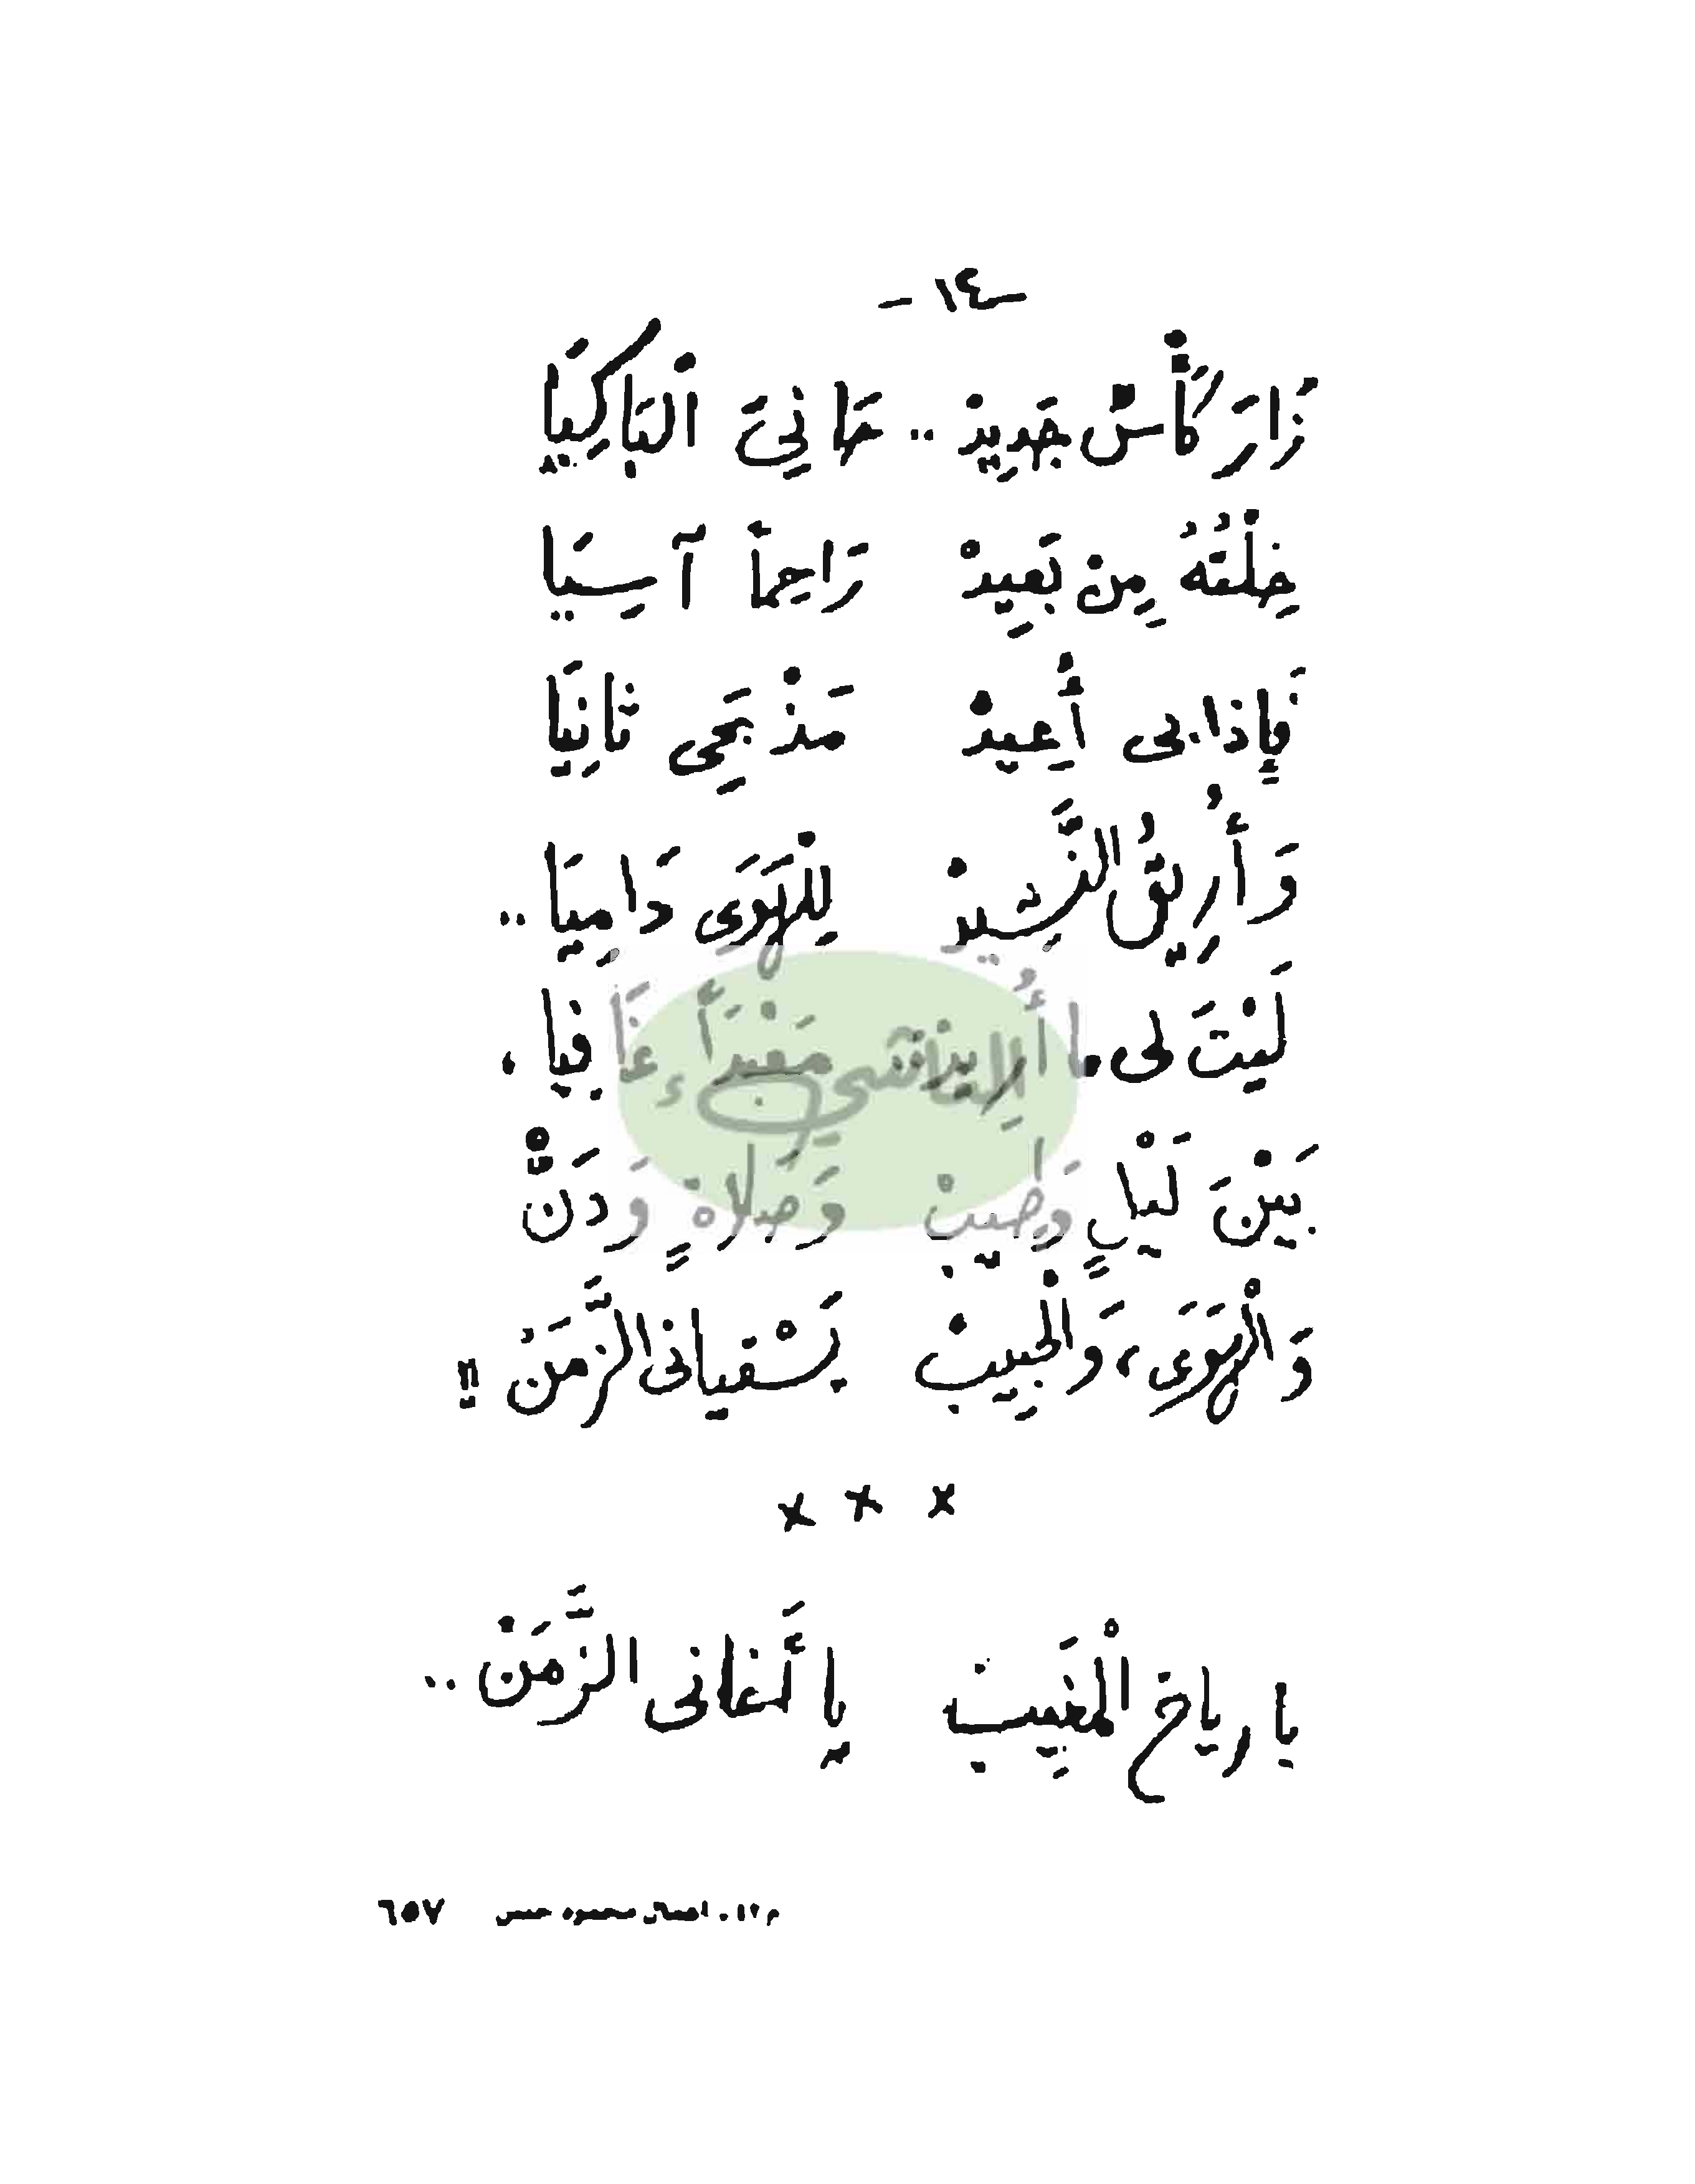 - ١٤ -
زَارَ كَأْسٌ جَدِيدْ .. حَانِىَ الْبَاكِيَا
خِلْتُهُ مِنْ بَعِيدْ رَاحِماً آسِيَا
فَإِذا بى أُعِيدْ مَذْبَحِى ثانِيَا
وَأُرِيقُ النَّشِيدْ لِلْهَوَى دَامِيَا ..
لَيْتَ لى ما أُرِيدْ مَعْبَدَاً غَافِيا ،
بَيْنَ لَيْلٍ وَصَلاةٍ وَدَنّْ
وَالْهَوَى ، وَالْحَبِيبْ يَسْقيانى الزَّمَنْ !!
× × ×
يا رياحَ الْمَغِيبْ يا أَغانى الزَّمَنْ ..
م ٤٢ . اعمال محمود حسن ٦٥٧